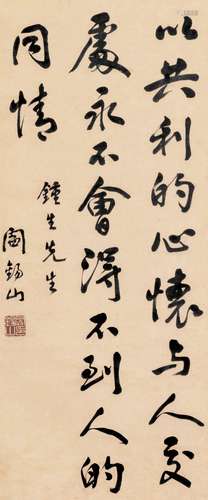 以共利的心懷与人交
處永不會得不到人的
同情
鍾生先生
閻錫山